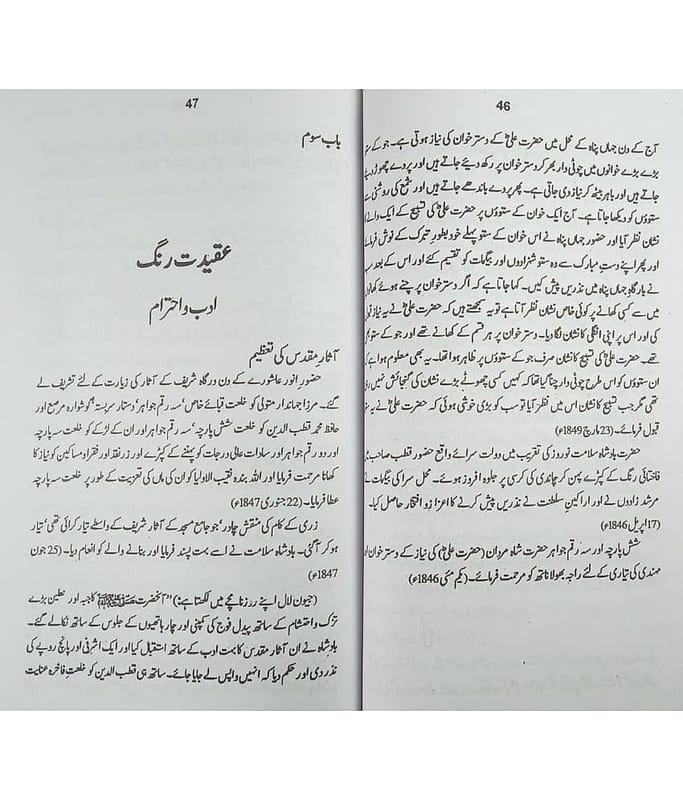 46
آج کے دن جہاں پناہ کے محل میں حضرت علیؓ کے دسترخوان کی نیاز ہوتی ہے۔ جو کے ستو
بڑے بڑے خوانوں میں چوٹی دار بھر کر دسترخوان پر رکھ دیئے جاتے ہیں اور پردے چھوڑ دیئے
جاتے ہیں اور باہر بیٹھ کر نیاز دی جاتی ہے۔ پھر پردے باندھے جاتے ہیں اور شمع کی روشنی
ستوؤں کو دیکھا جاتا ہے۔ آج ایک خوان کے ستوؤں پر حضرت علیؓ کی تسبیح کے ایک دانے کا
نشان نظر آیا اور حضور جہاں پناہ نے اس خوان کے ستو پہلے خود بطور تبرک کے نوش فرمائے
اور پھر اپنے دست مبارک سے وہ ستو شہزادوں اور بیگمات کو تقسیم کئے اور اس کے بعد سب
نے بارگاہ جہاں پناہ میں نذریں پیش کیں۔ کہا جاتا ہے کہ اگر دسترخوان پر چنے ہوئے کھانوں
میں سے کسی کھانے پر کوئی خاص نشان نظر آتا ہے تو یہ سمجھتے ہیں کہ حضرت علیؓ نے یہ نیاز قبول
کی اور اس پر اپنی انگلی کا نشان لگا دیا۔ دسترخوان پر ہر قسم کے کھانے تھے اور جو کے ستو بھی
تھے۔ حضرت علیؓ کی تسبیح کا نشان صرف جو کے ستوؤں پر ظاہر ہوا تھا۔ یہ بھی معلوم ہوا ہے کہ
ان ستوؤں کو اس طرح چوٹی دار چنا گیا تھا کہ کہیں کسی چھوٹے بڑے نشان کی گنجائش نہیں رہی
تھی مگر جب تسبیح کا نشان اس میں نظر آیا تو سب کو بڑی خوشی ہوئی کہ حضرت علیؓ نے یہ ستو
قبول فرمائے۔ (23 مارچ 1849ء)
حضرت بادشاہ سلامت نوروز کی تقریب میں دولت سرائے واقع حضور قطب صاحب میں
فاختائی رنگ کے کپڑے پہن کر چاندی کی کرسی پر جلوہ افروز ہوئے۔ محل سرا کی بیگمات نے
مرشد زادوں نے اور اراکین سلطنت نے نذریں پیش کرنے کا اعزاز و افتخار حاصل کیا۔
(17 اپریل 1846ء)
شش پارچہ اور سہ رقم جواہر حضرت شاہ مرداں (حضرت علیؓ) کی نیاز کے دسترخوان اور
مہندی کی تیاری کے لئے راجہ بھولا ناتھ کو مرحمت فرمائے۔ (یکم مئی 1846ء)
47
باب سوم
عقیدت رنگ
ادب و احترام
آثار مقدس کی تعظیم
حضور انور عاشورے کے دن درگاہ شریف کے آثار کی زیارت کے لئے تشریف لے
گئے۔ مرزا جہاندار متولی کو خلعت قبائے خاص، سہ رقم جواہر، دستار سربستہ، گوشوارہ مرصع اور
حافظ محمد قطب الدین کو خلعت شش پارچہ، سہ رقم جواہر اور ان کے لڑکے کو خلعت سہ پارچہ
اور دو رقم جواہر اور سادات عالی درجات کو پہننے کے کپڑے اور زر نقد اور فقرا و مساکین کو نیاز کا
کھانا مرحمت فرمایا اور اللہ بندہ نقیب الاولیا کو ان کی ماں کی تعزیت کے طور پر خلعت سہ پارچہ
عطا فرمایا۔ (22 جنوری 1847ء)
زری کے کام کی منقش چادر، جو جامع مسجد کے آثار شریف کے واسطے تیار کرائی تھی، تیار
ہو کر آ گئی۔ بادشاہ سلامت نے اسے بہت پسند فرمایا اور بنانے والے کو انعام دیا۔ (25 جون
1847ء)
(جیون لال اپنے روزنامچے میں لکھتا ہے:) "آنحضرت ﷺ کا جبہ اور نعلین بڑے
تزک و احتشام کے ساتھ پیدل فوج کی کمپنی اور چار ہاتھیوں کے جلوس کے ساتھ نکالے گئے۔
بادشاہ نے ان آثار مقدس کا بہت ادب کے ساتھ استقبال کیا اور ایک اشرفی اور پانچ روپے کی
نذر دی اور حکم دیا کہ انہیں واپس لے جایا جائے۔ ساتھ ہی قطب الدین کو خلعت فاخرہ عنایت